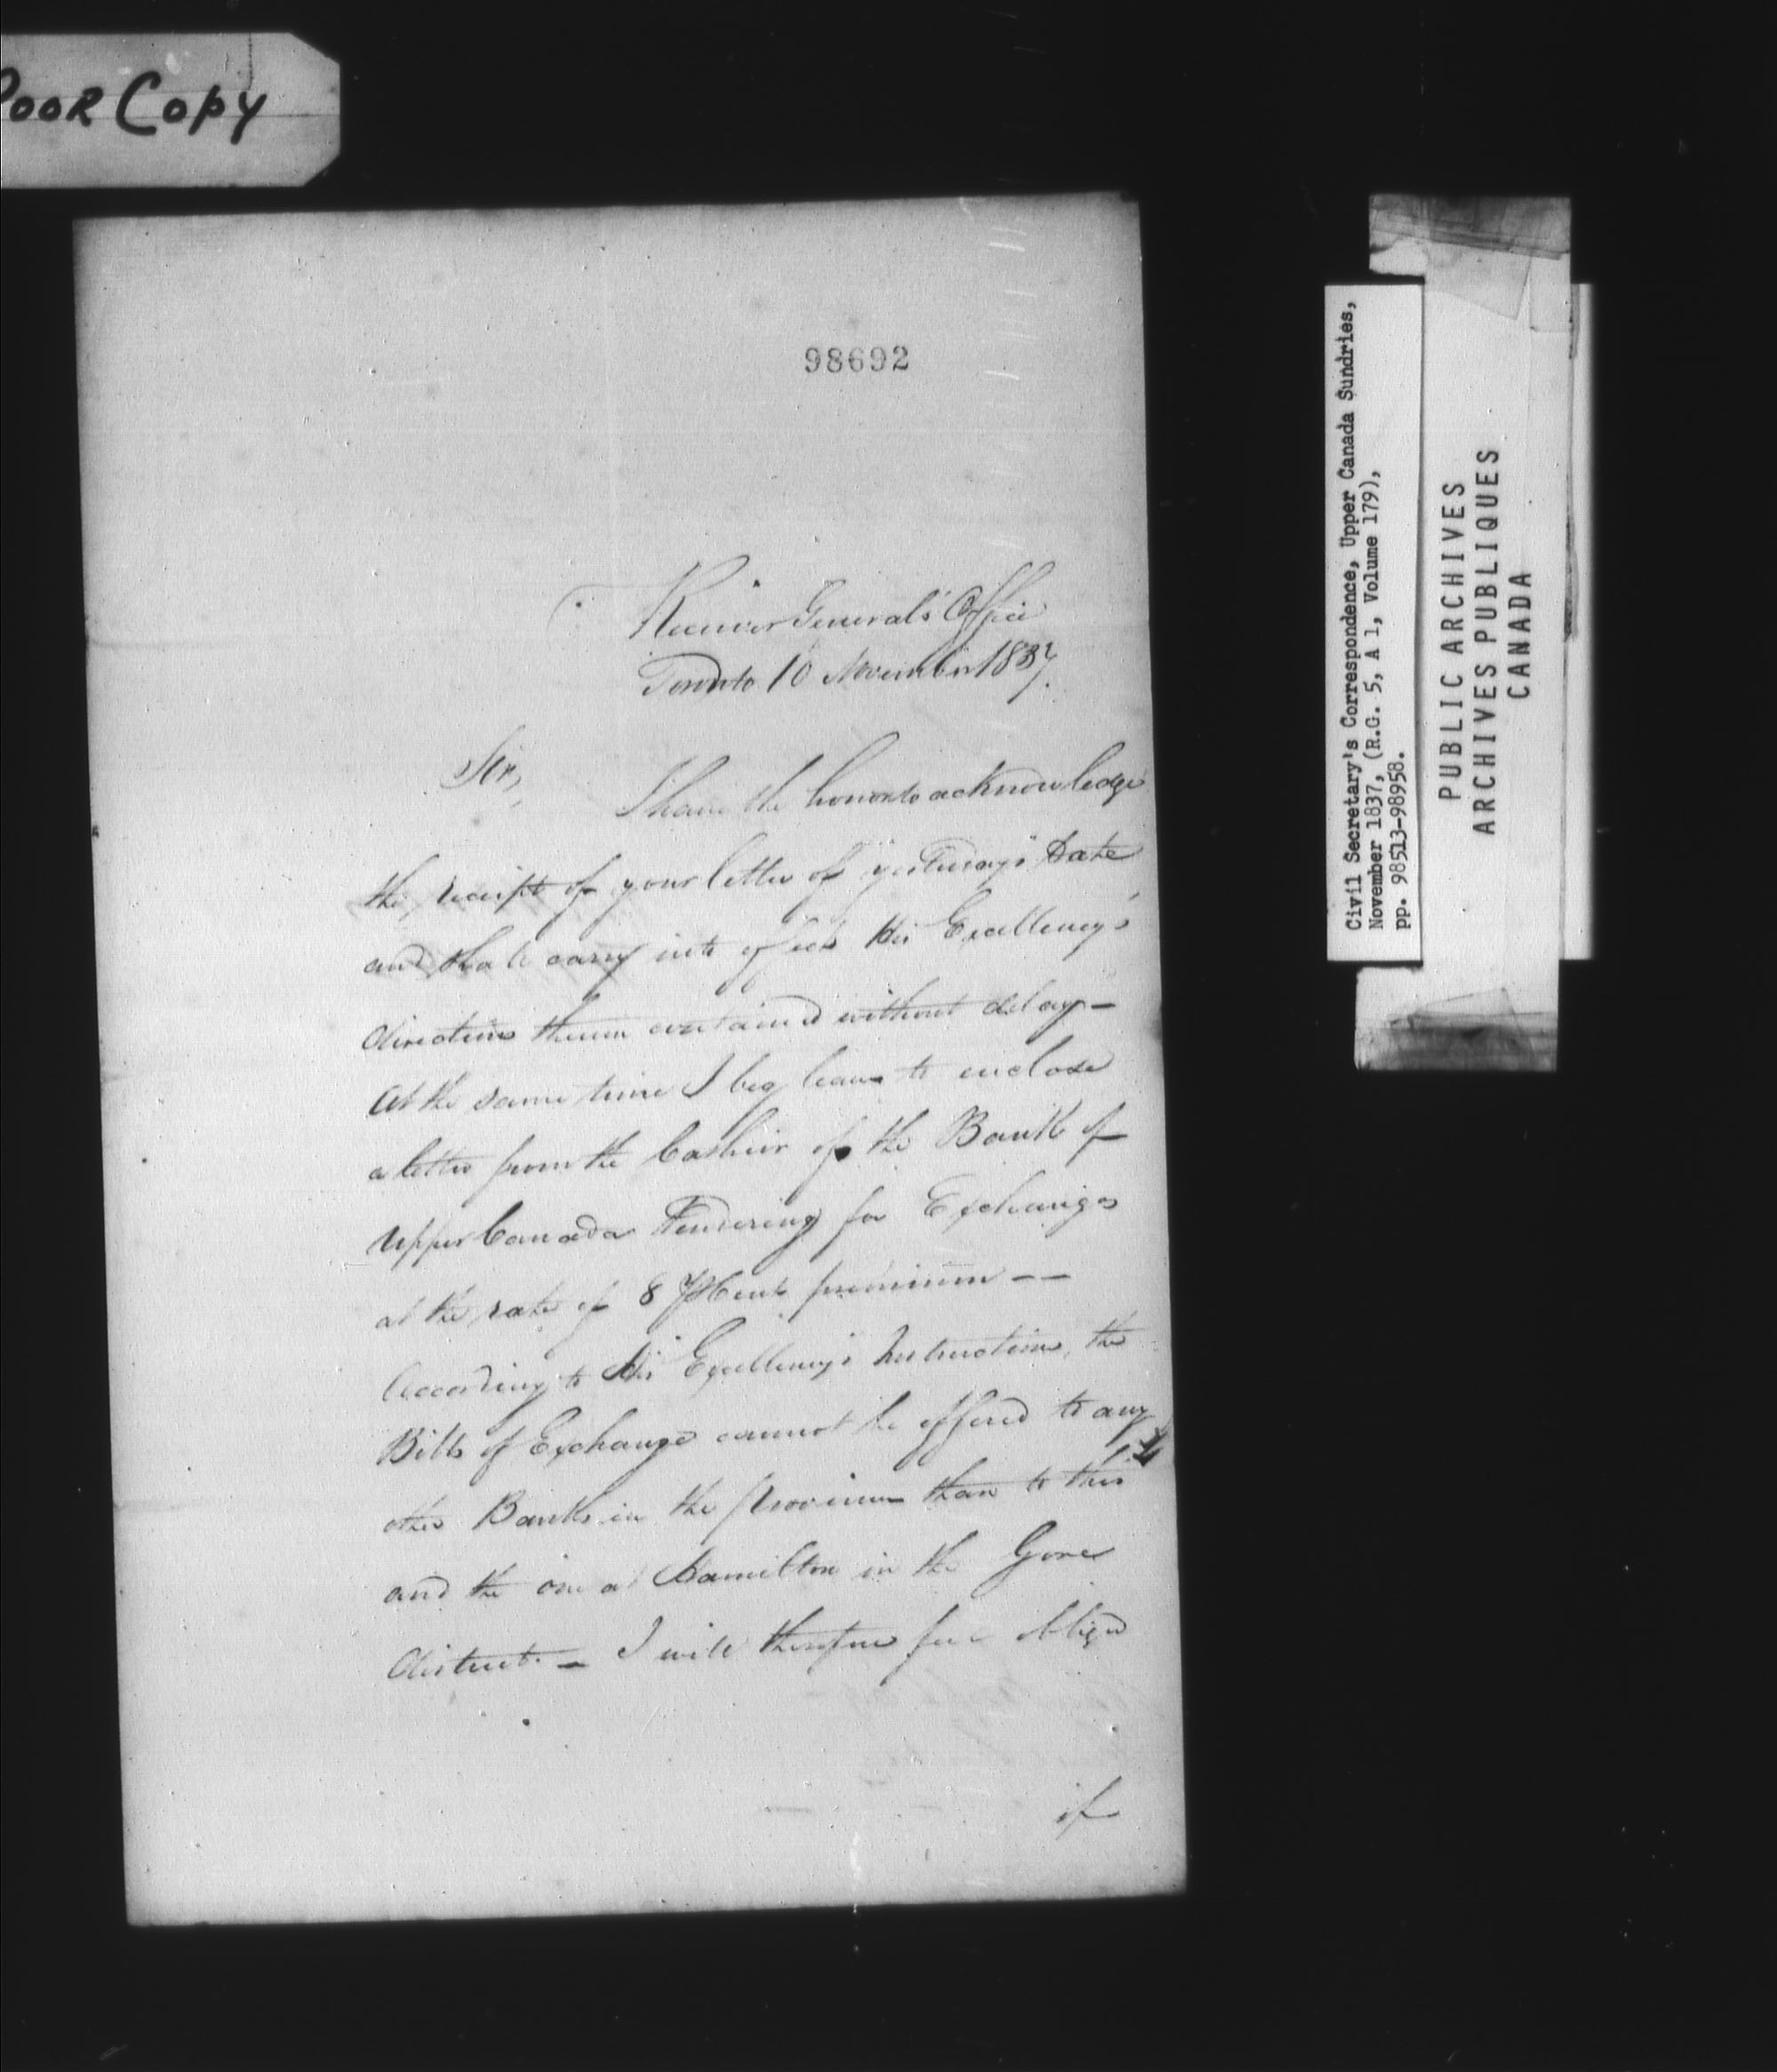 Poor Copy
98692
Receiver General's Office
Toronto 10 November 1837.
Sir,
I have the honor to acknowledge
the receipt of your letter of yesterday's Date
and shall carry into effect His Excellency's
directions therein contained without delay –
At the same time I beg leave to enclose
a letter from the Cashier of the Bank of
Upper Canada Tendering for Exchange
at the rate of 8 ⅌ Cent premium – –
According to His Excellency's Instructions, the
Bills of Exchange cannot be offered to any
other Banks in the Province than to this
and the one at Hamilton in the Gore
district. – I will therefore feel obliged
if
Civil Secretary's Correspondence, Upper Canada Sundries,
November 1837, (R.G. 5, A 1, Volume 179),
pp. 98513-98958.
PUBLIC ARCHIVES
ARCHIVES PUBLIQUES
CANADA